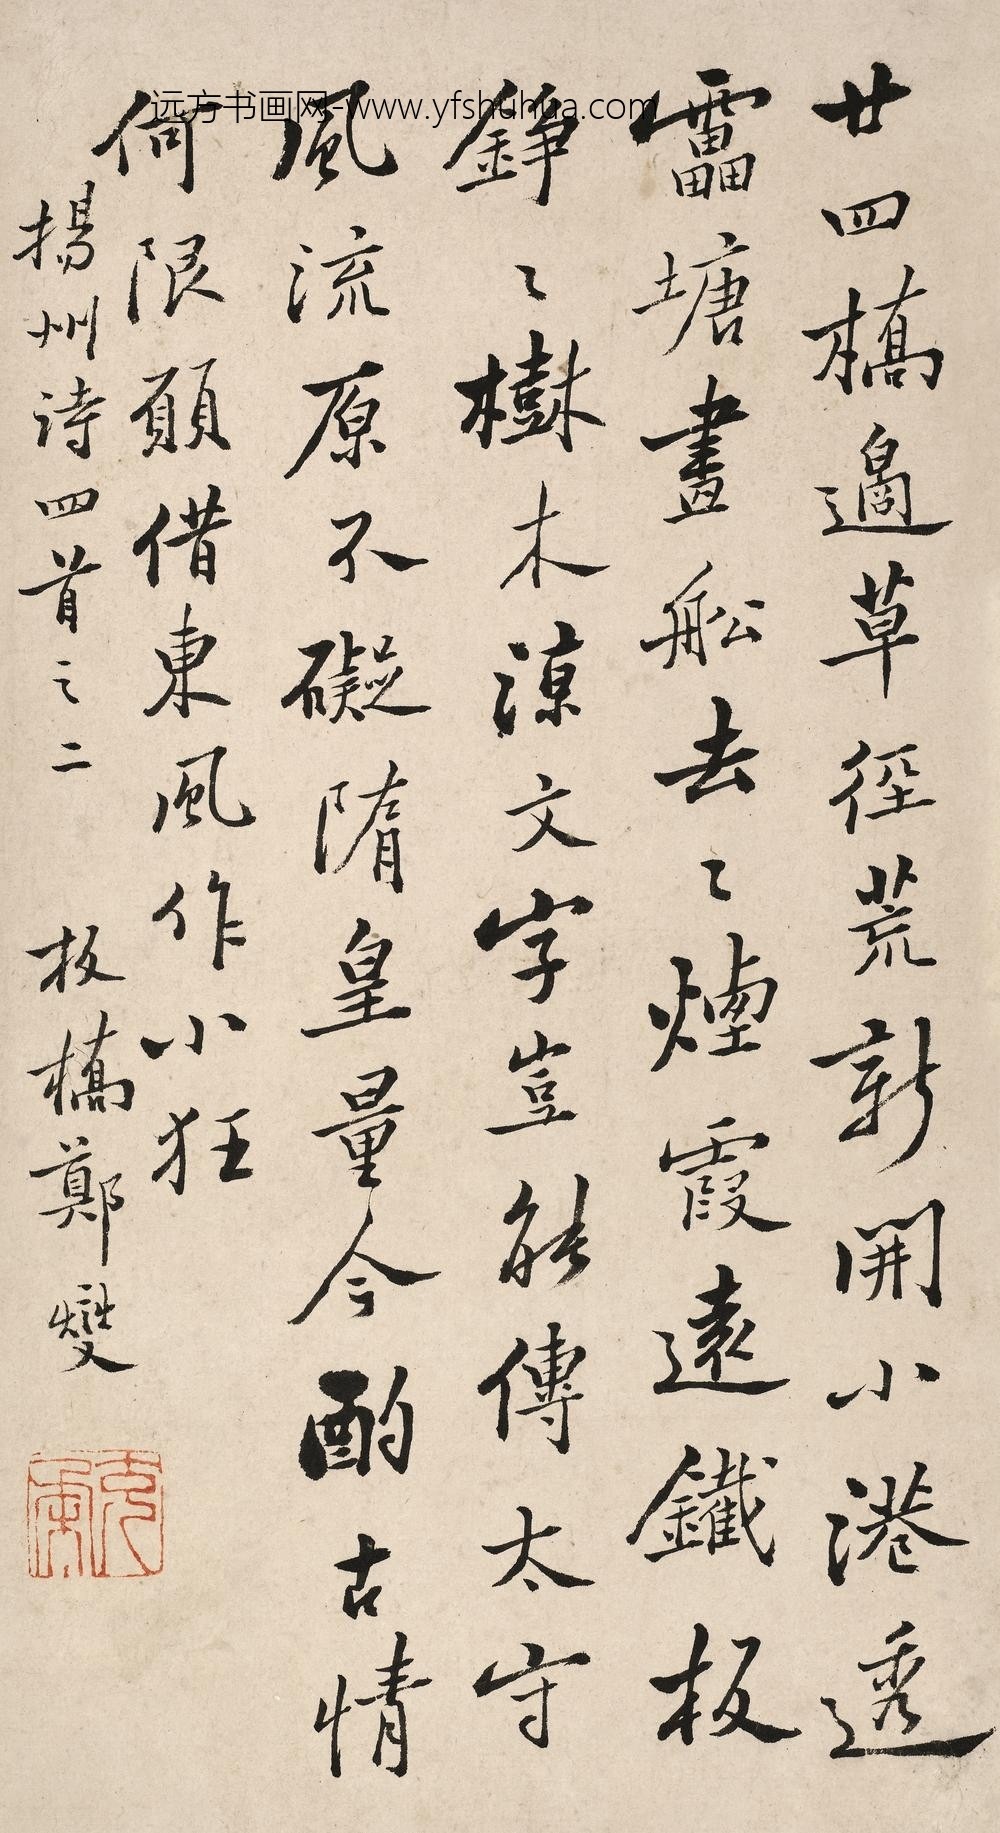 远方书画网-www.yfshuhua.com
廿四橋邊草徑荒新開小港透
雷塘畫船去〻煙霞遠鐵板
錚〻樹木涼文字豈能傳太守
風流原不礙隋皇量今酌古情
何限願借東風作小狂
揚州詩四首之二 板橋鄭燮